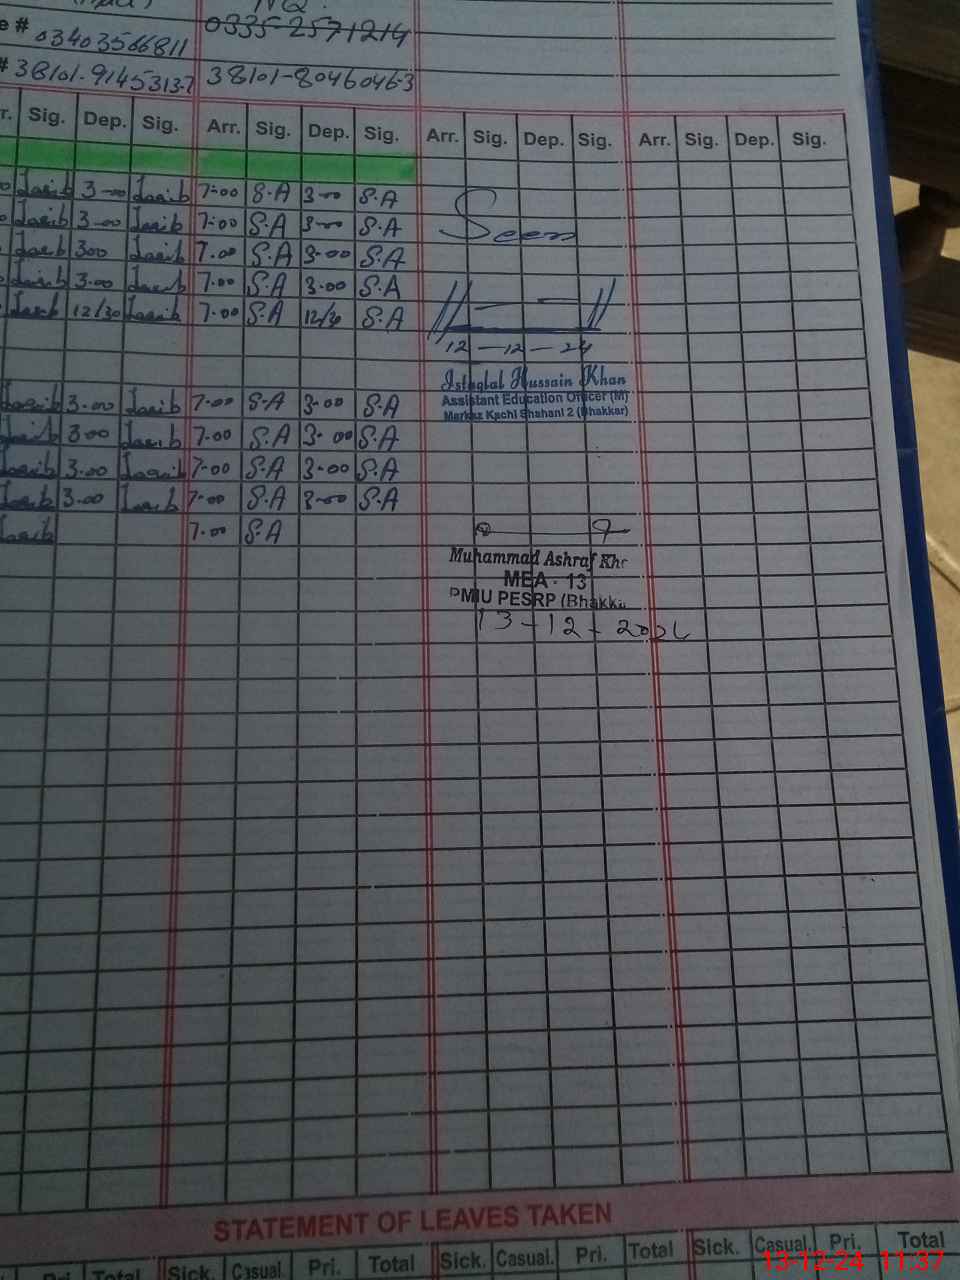 NQ.
e # 03403566811 0335-2571214
# 38101-9145313-7 38101-8046046-3
r. Sig. Dep. Sig. Arr. Sig. Dep. Sig. Arr. Sig. Dep. Sig. Arr. Sig. Dep. Sig.
Laaib 3-00 Laaib 7-00 S.A 3-00 S.A
Laaib 3-00 Laaib 7-00 S.A 3-00 S.A
Seen
Laaib 300 Laaib 7.00 S.A 3-00 S.A
Laaib 3.00 Laaib 7.00 S.A 3.00 S.A
Laaib 12/30 Laaib 7.00 S.A 12/30 S.A
12-12-24
Istaqlal Hussain Khan
Assistant Education Officer (M)
Markaz Kachi Shahani 2 (Bhakkar)
Laaib 3.00 Laaib 7-00 S.A 3-00 S.A
Laaib 3.00 Laaib 7-00 S.A 3-00 S.A
Laaib 3.00 Laaib 7-00 S.A 3-00 S.A
Laaib 3.00 Laaib 7-00 S.A 3-00 S.A
Laaib 7.00 S.A
Muhammad Ashraf Kh
MEA - 13
PMIU PESRP (Bhakka
13-12-2024
STATEMENT OF LEAVES TAKEN
Pri. Total Sick. Casual. Pri. Total Sick. Casual. Pri. Total Sick. Casual. Pri. Total
13-12-24 11:37